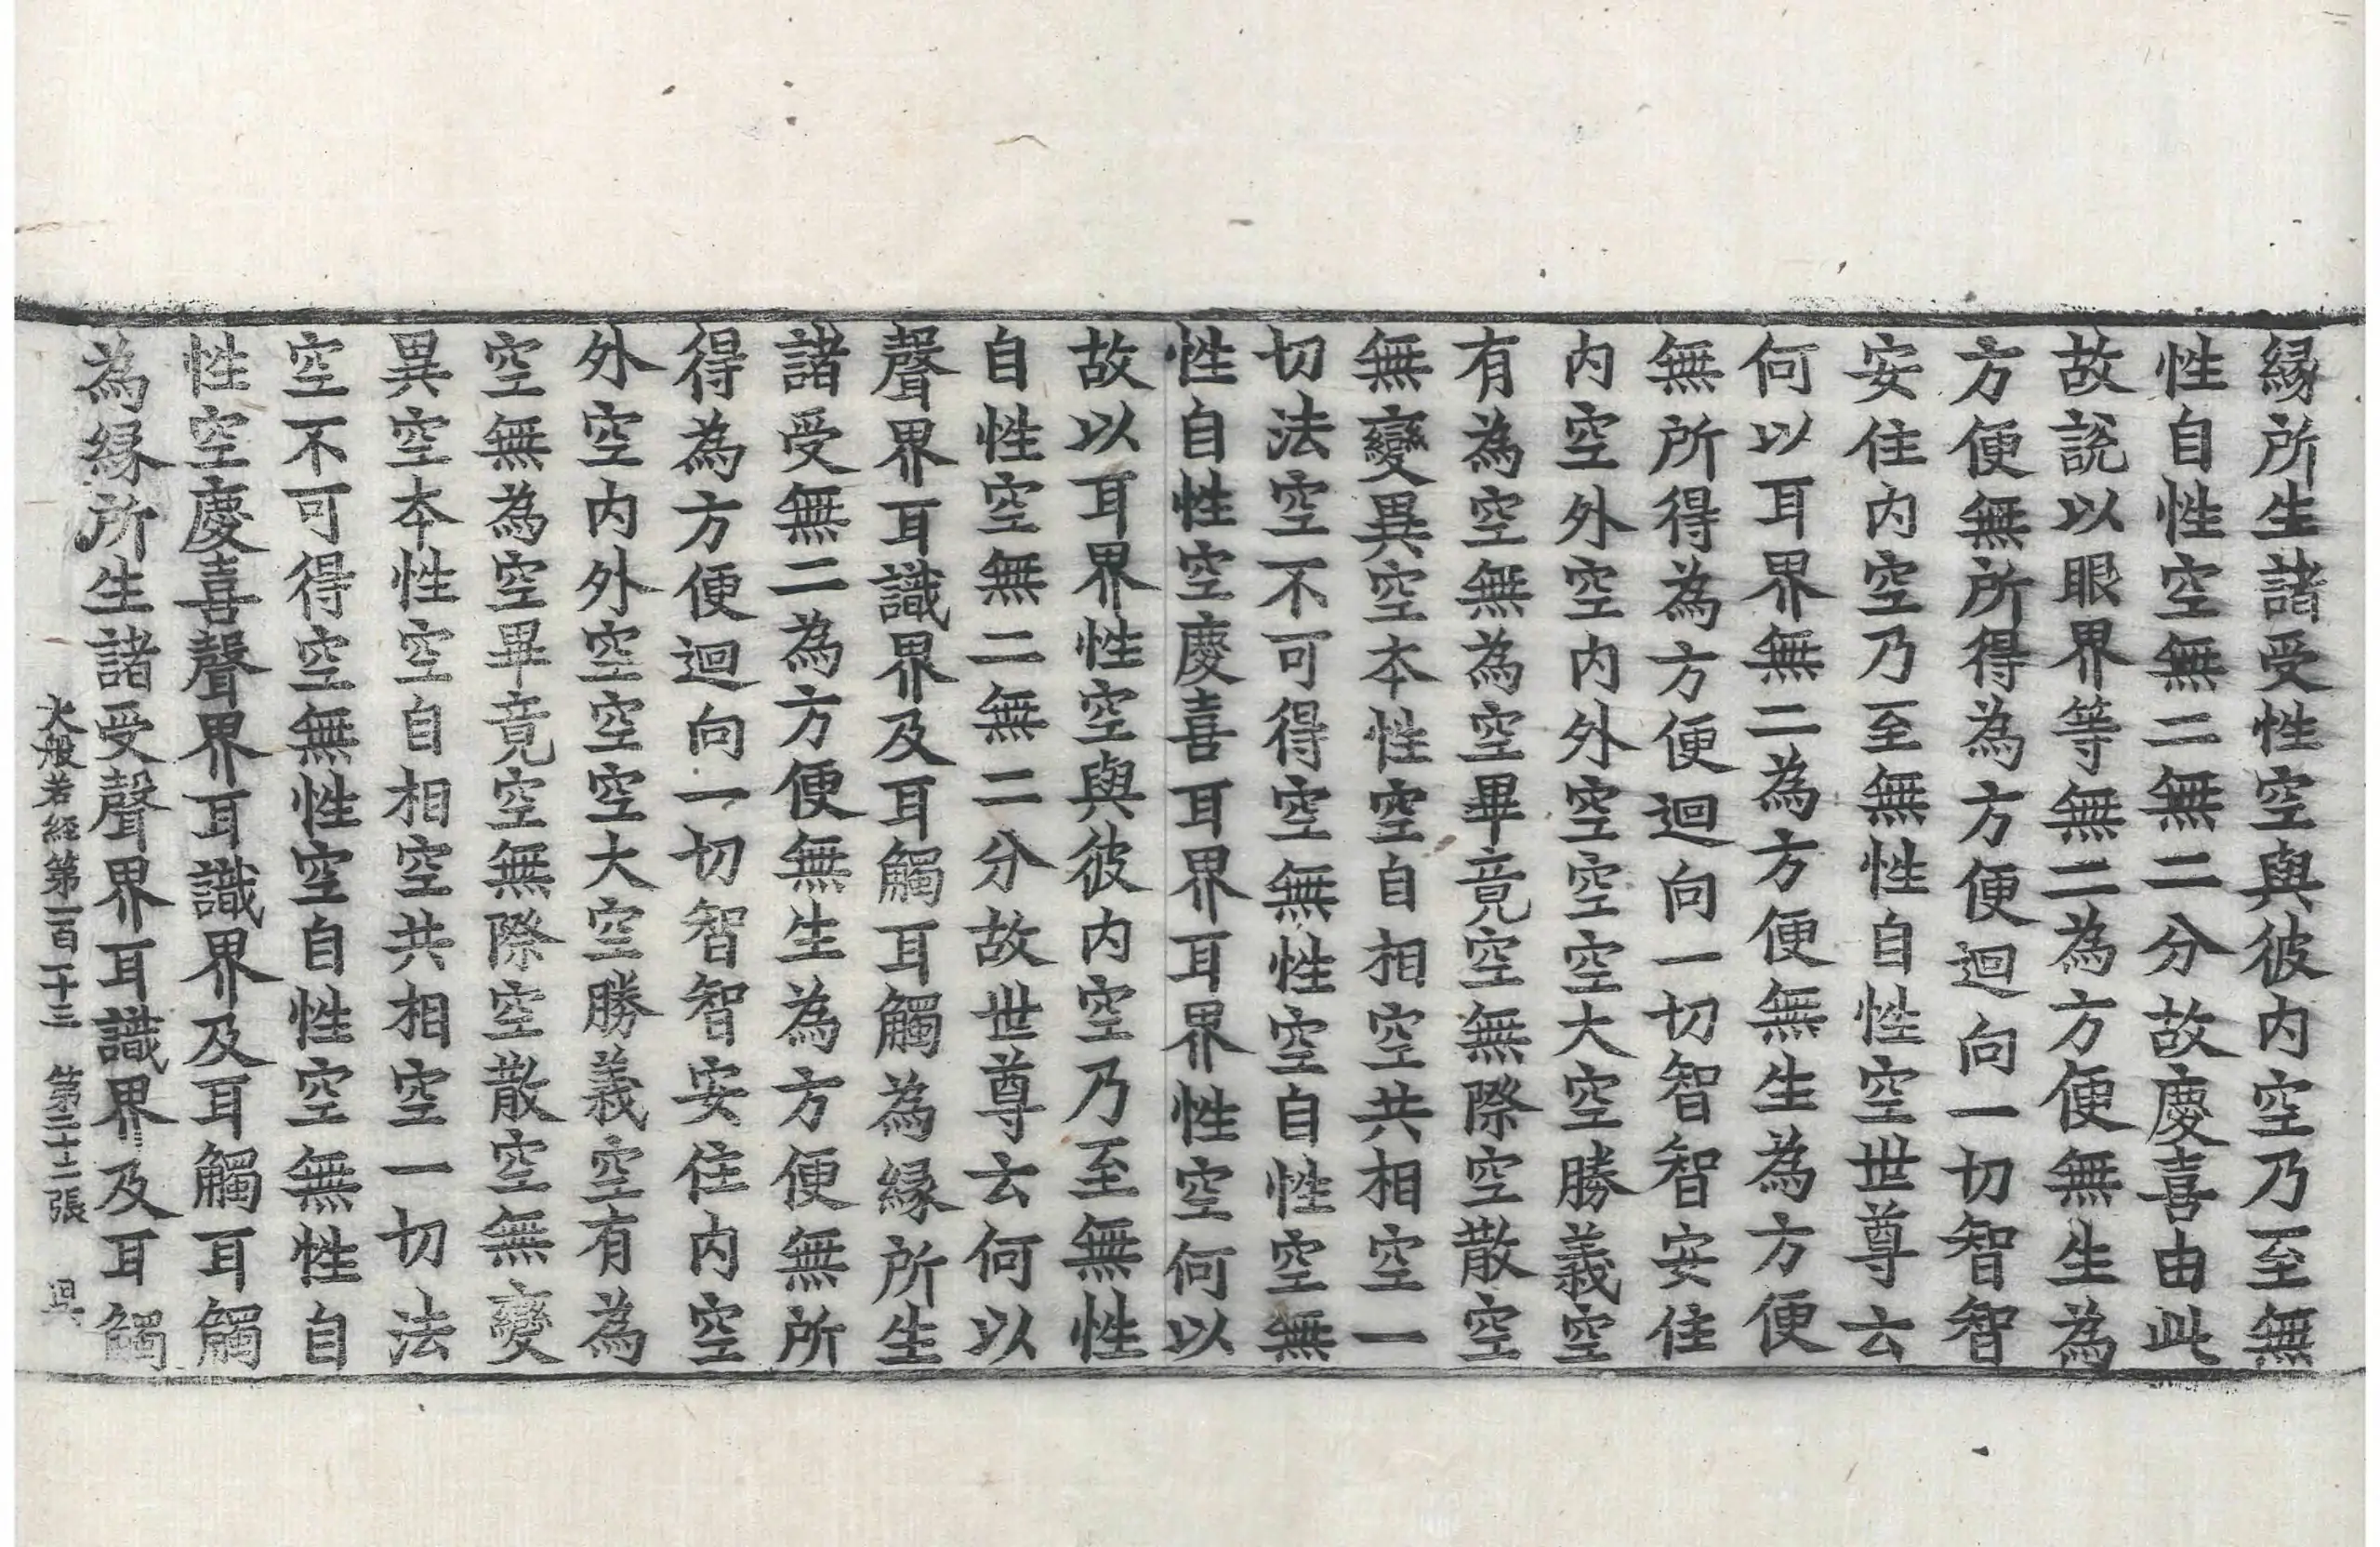 縁所生諸受性空與彼内空乃至無
性自性空無二無二分故慶喜由此
故説以眼界等無二為方便無生為
方便無所得為方便迴向一切智智
安住内空乃至無性自性空世尊云
何以耳界無二為方便無生為方便
無所得為方便迴向一切智智安住
内空外空内外空空空大空勝義空
有為空無為空畢竟空無際空散空
無變異空本性空自相空共相空一
切法空不可得空無性空自性空無
性自性空慶喜耳界耳界性空何以
故以耳界性空與彼内空乃至無性
自性空無二無二分故世尊云何以
聲界耳識界及耳觸耳觸為縁所生
諸受無二為方便無生為方便無所
得為方便迴向一切智智安住内空
外空内外空空空大空勝義空有為
空無為空畢竟空無際空散空無變
異空本性空自相空共相空一切法
空不可得空無性空自性空無性自
性空慶喜聲界耳識界及耳觸耳觸
為縁所生諸受聲界耳識界及耳觸
大般若經第一百一十三 第二十二張